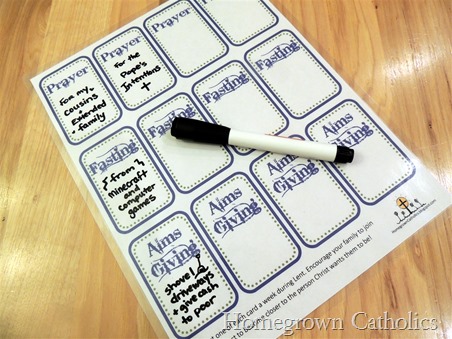 Prayer
For my
cousins
+
Extended
+ family
Prayer
For the
Pope's
Intentions
+
Prayer
Prayer
Fasting
{from}
minecraft
and
computer
games
Fasting
Fasting
Fasting
Alms
Giving
shovel
driveways
+ give cash
to poor
Alms
Giving
Alms
Giving
Alms
Giving
one card a week during Lent. Encourage your family to join
to becoming closer to the person Christ wants them to be!
Homegrown Catholics